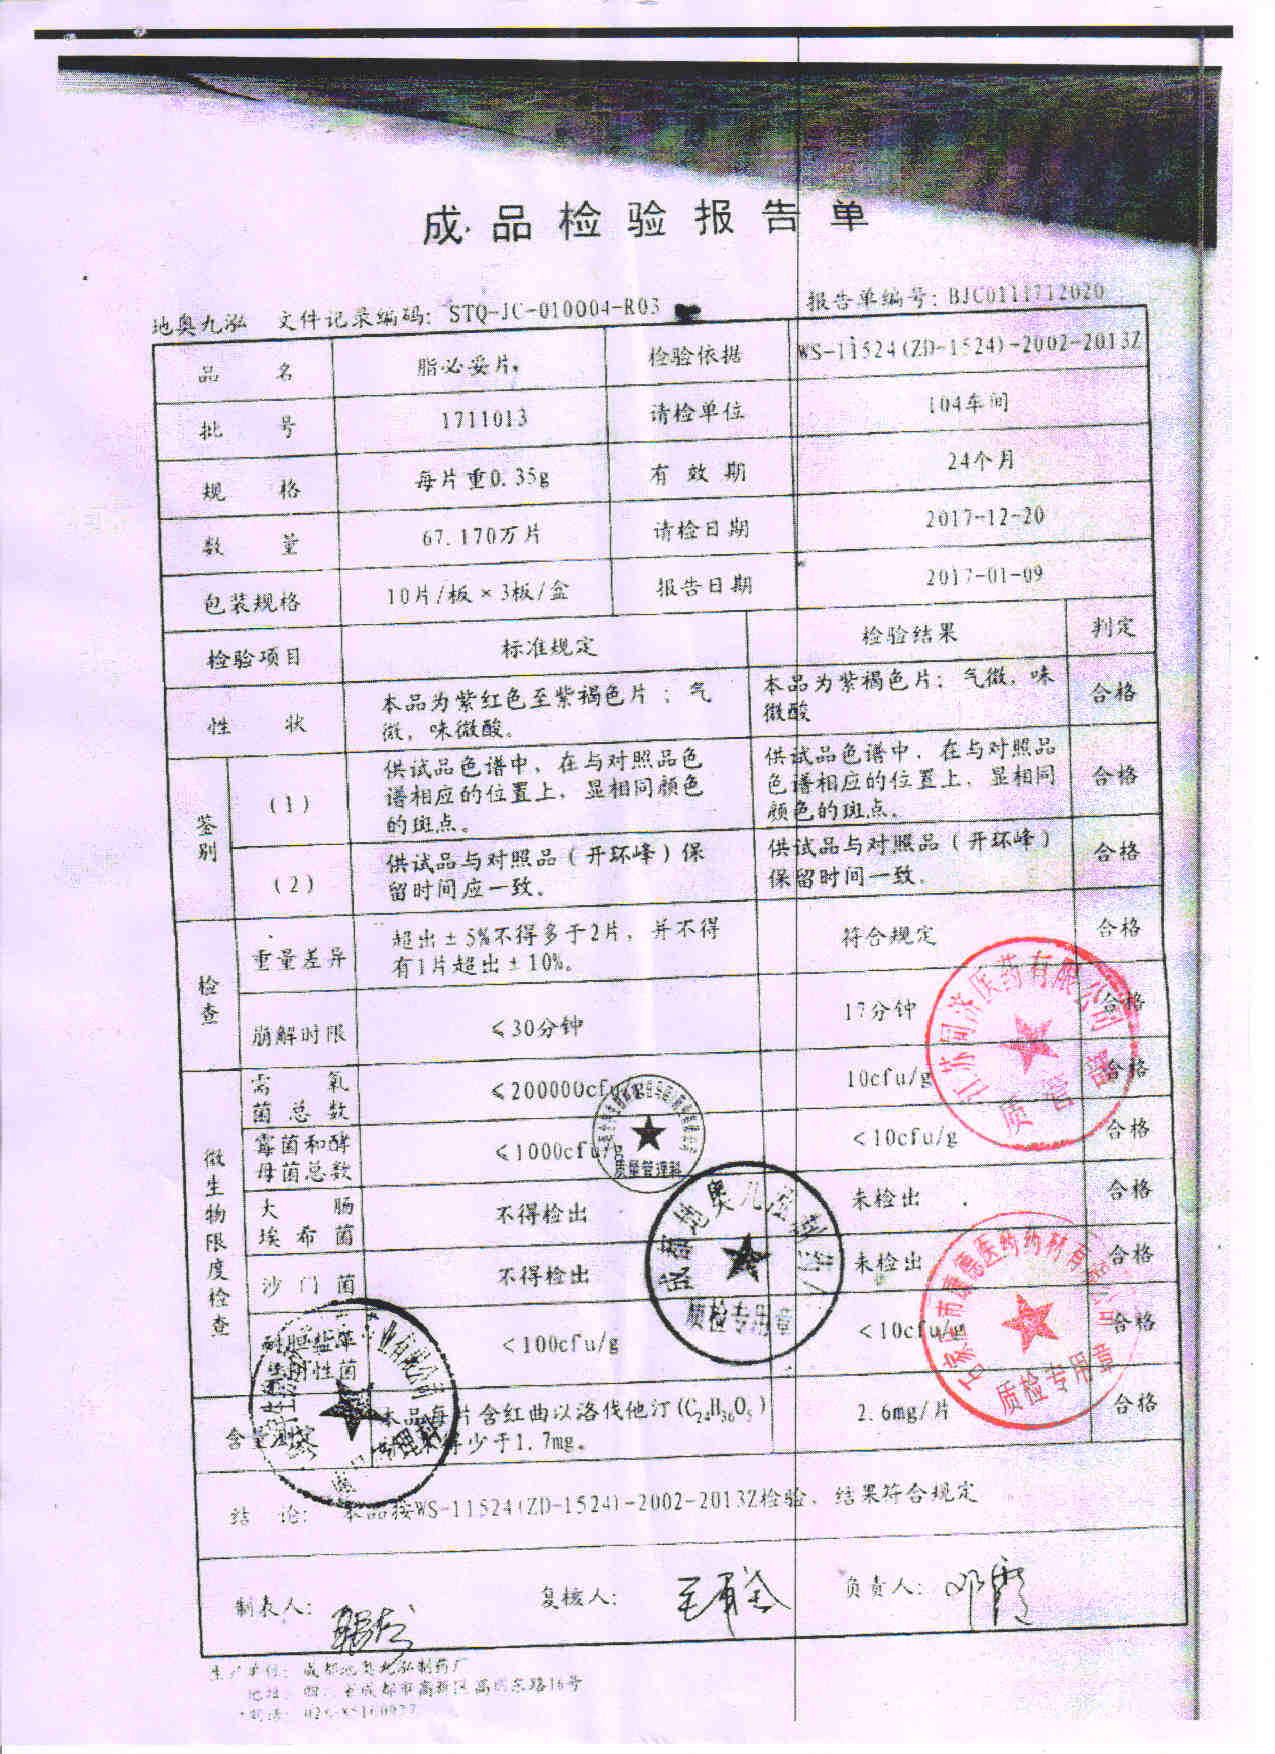 成品检验报告单
地奥九泓 文件记录编码: STQ-JC-010004-R03 报告单编号: BJC0111712020
品名 脂必妥片 检验依据 WS-11524(ZD-1524)-2002-2013Z
批号 1711013 请检单位 104车间
规格 每片重0.35g 有效期 24个月
数量 67.170万片 请检日期 2017-12-20
包装规格 10片/板×3板/盒 报告日期 2017-01-09
检验项目 标准规定 检验结果 判定
性状 本品为紫红色至紫褐色片；气微，味微酸。 本品为紫褐色片；气微，味微酸 合格
鉴别
(1) 供试品色谱中，在与对照品色谱相应的位置上，显相同颜色的斑点。 供试品色谱中，在与对照品色谱相应的位置上，显相同颜色的斑点。 合格
(2) 供试品与对照品（开环峰）保留时间应一致。 供试品与对照品（开环峰）保留时间一致。 合格
检查
重量差异 超出±5%不得多于2片，并不得有1片超出±10%。 符合规定 合格
崩解时限 ≤30分钟 17分钟 合格
微生物限度检查
需氧菌总数 ≤200000cfu/g 10cfu/g 合格
霉菌和酵母菌总数 ≤1000cfu/g <10cfu/g 合格
大肠埃希菌 不得检出 未检出 合格
沙门菌 不得检出 未检出 合格
耐胆盐革兰阴性菌 <100cfu/g <10cfu/g 合格
含量 本品每片含红曲以洛伐他汀(C24H36O5) 少于1.7mg。 2.6mg/片 合格
结论: 本品按WS-11524(ZD-1524)-2002-2013Z检验，结果符合规定
制表人: 复核人: 负责人:
生产单位: 成都地奥九泓制药厂
地址: 四川省成都市高新区高朋东路16号
电话:
江苏同济医药有限公司
质管部
质量管理科
成都地奥九泓制药厂
质检专用章
石家庄市康德医药药材有限公司
质检专用章
业有限公司